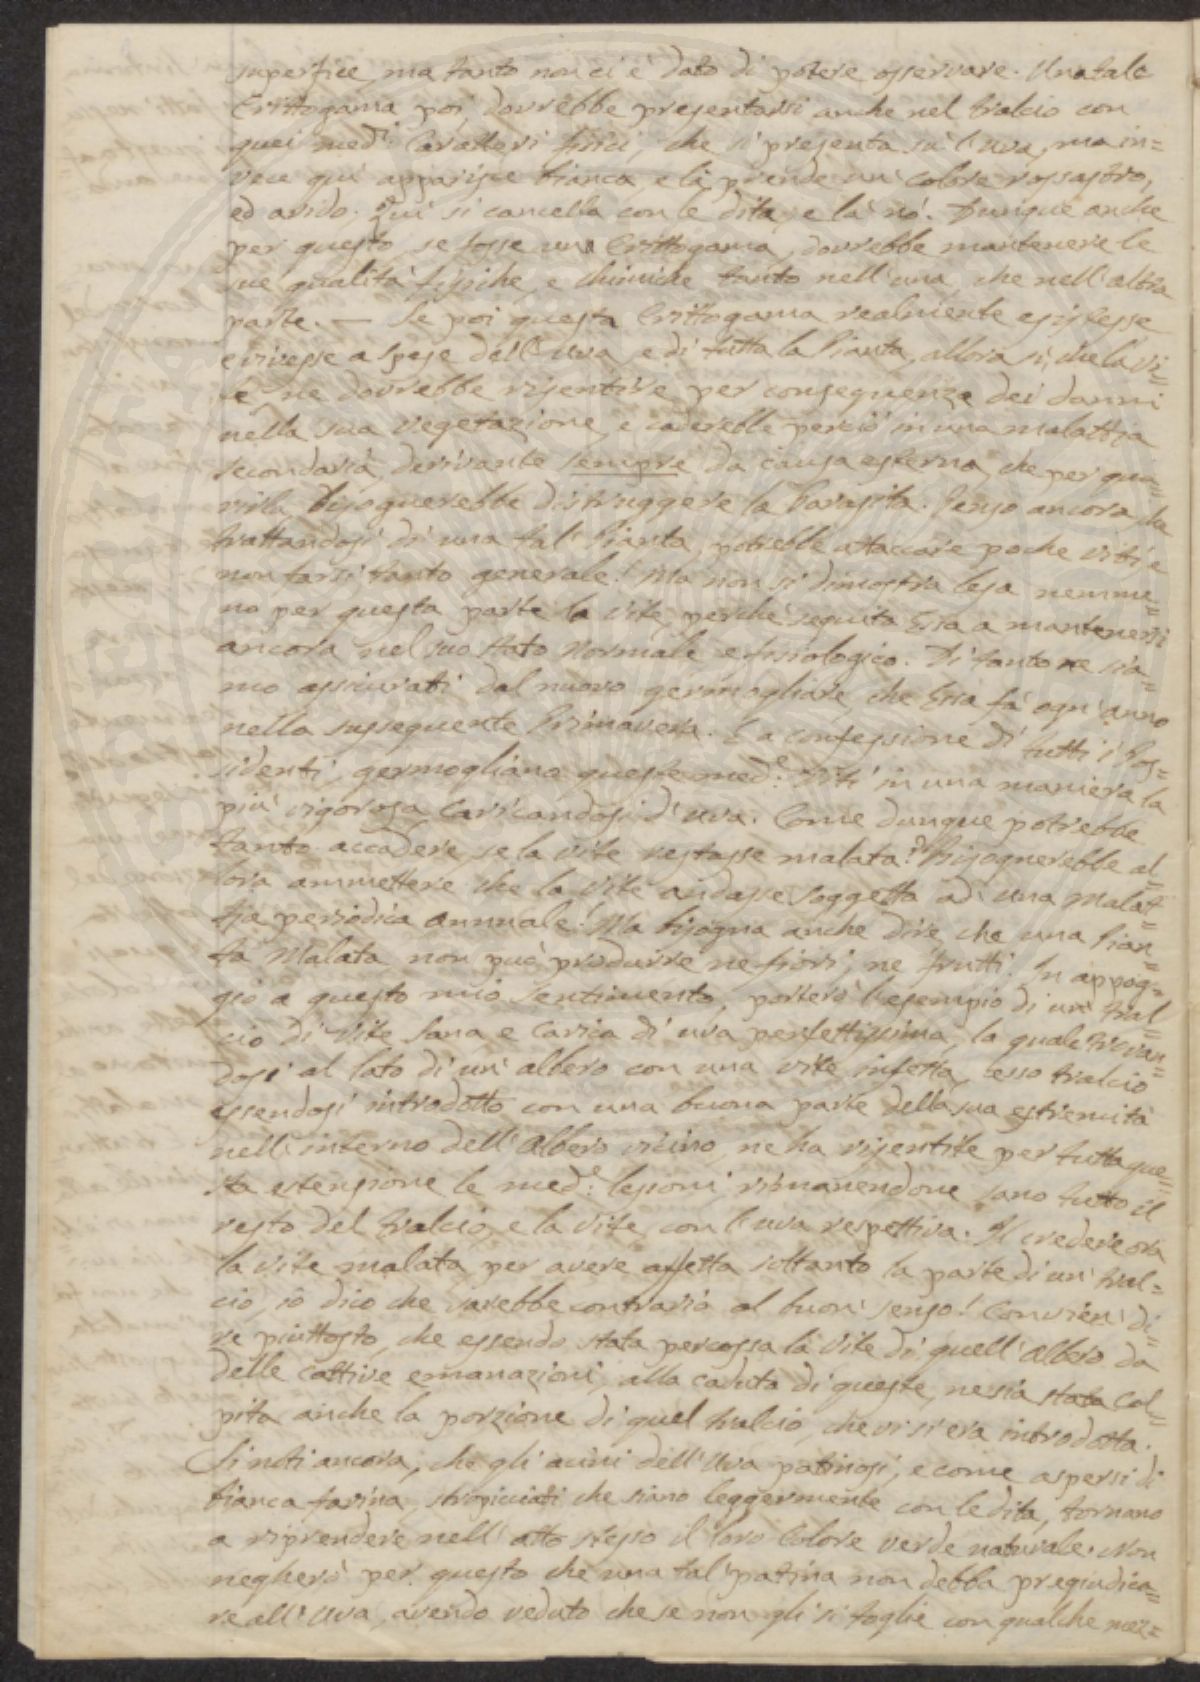 superfice, ma tanto non ci è dato di potere osservare. Una tale
Crittogama poi, dovrebbe presentarsi anche nel tralcio con
quei med.i Caratteri fisici, che si presenta sù l'uva, ma in=
vece quì apparisce bianca, e là prende un' colore rossastro,
ed arido. Quì si cancella con le dita, e là nò. Dunque anche
per questo, se fosse una Crittogama, dovrebbe mantenere le
sue qualità fisiche, e chimiche tanto nell'una, che nell'altra
parte. — Se poi questa Crittogama realmente esistesse
e vivesse a spese dell'uva, e di tutta la Pianta, allora sì, che la vi=
te ne dovrebbe risentire per conseguenza dei danni
nella sua vegetazione, e caderebbe perciò in una malattia
secondaria, derivante sempre da causa esterna, che per gua=
rirla bisognerebbe distruggere la Parasita. Penso ancora, che
trattandosi di una tal' Pianta, potrebbe attaccare poche viti, e
non farsi tanto generale! Ma non si dimostra lesa nemme=
no per questa parte la Vite, perchè seguita Essa a mantenersi
ancora nel suo stato Normale e fisiologico. Di tanto ne sia=
mo assicurati dal nuovo germogliare, che Essa fà ogn'anno
nella susseguente Primavera. E a confessione di tutti i Pos=
sidenti, germogliano queste med.e Viti in una maniera la
più vigorosa Caricandosi d'uva. Come dunque potrebbe
tanto accadere, se la vite restasse malata? Bisognerebbe al=
lora ammettere che la Vite andasse soggetta ad una Malat=
tia periodica annuale! Ma bisogna anche dire, che una Pian=
ta Malata non può produrre ne fiori, ne frutti. In appog=
gio a questo mio Sentimento, porterò l'esempio di un' tral=
cio di Vite Sana e Carica di uva perfettissima, la quale trovan=
dosi al lato di un' albero con una vite infetta, esso tralcio
essendosi introdotto con una buona parte della sua estremità
nell'interno dell'Albero vicino, ne ha risentite per tutta que=
sta estensione le med.e lesioni, rimanendone sano tutto il
resto del tralcio, e la Vite, con l'uva respettiva. Il credere ora
la vite malata per avere affetta soltanto la parte di un' tral=
cio, iò dico che sarebbe contrario al buon' senso! Convien' di=
re piuttosto, che essendo stata percossa la Vite di quell'albero da
delle Cattive emanazioni, alla caduta di queste, ne sia stata Col=
pita anche la porzione di quel tralcio, che vi si era introdotta.
Si noti ancora, che gli acini dell'Uva patinosi, e come aspersi di
bianca farina, stropicciati che siano leggermente con le dita, tornano
a riprendere nell'atto stesso il loro Colore verde naturale. Non
negherò per questo che una tal' patina non debba pregiudica=
re all'Uva, avendo veduto che se non gli si toglie con qualche mez=